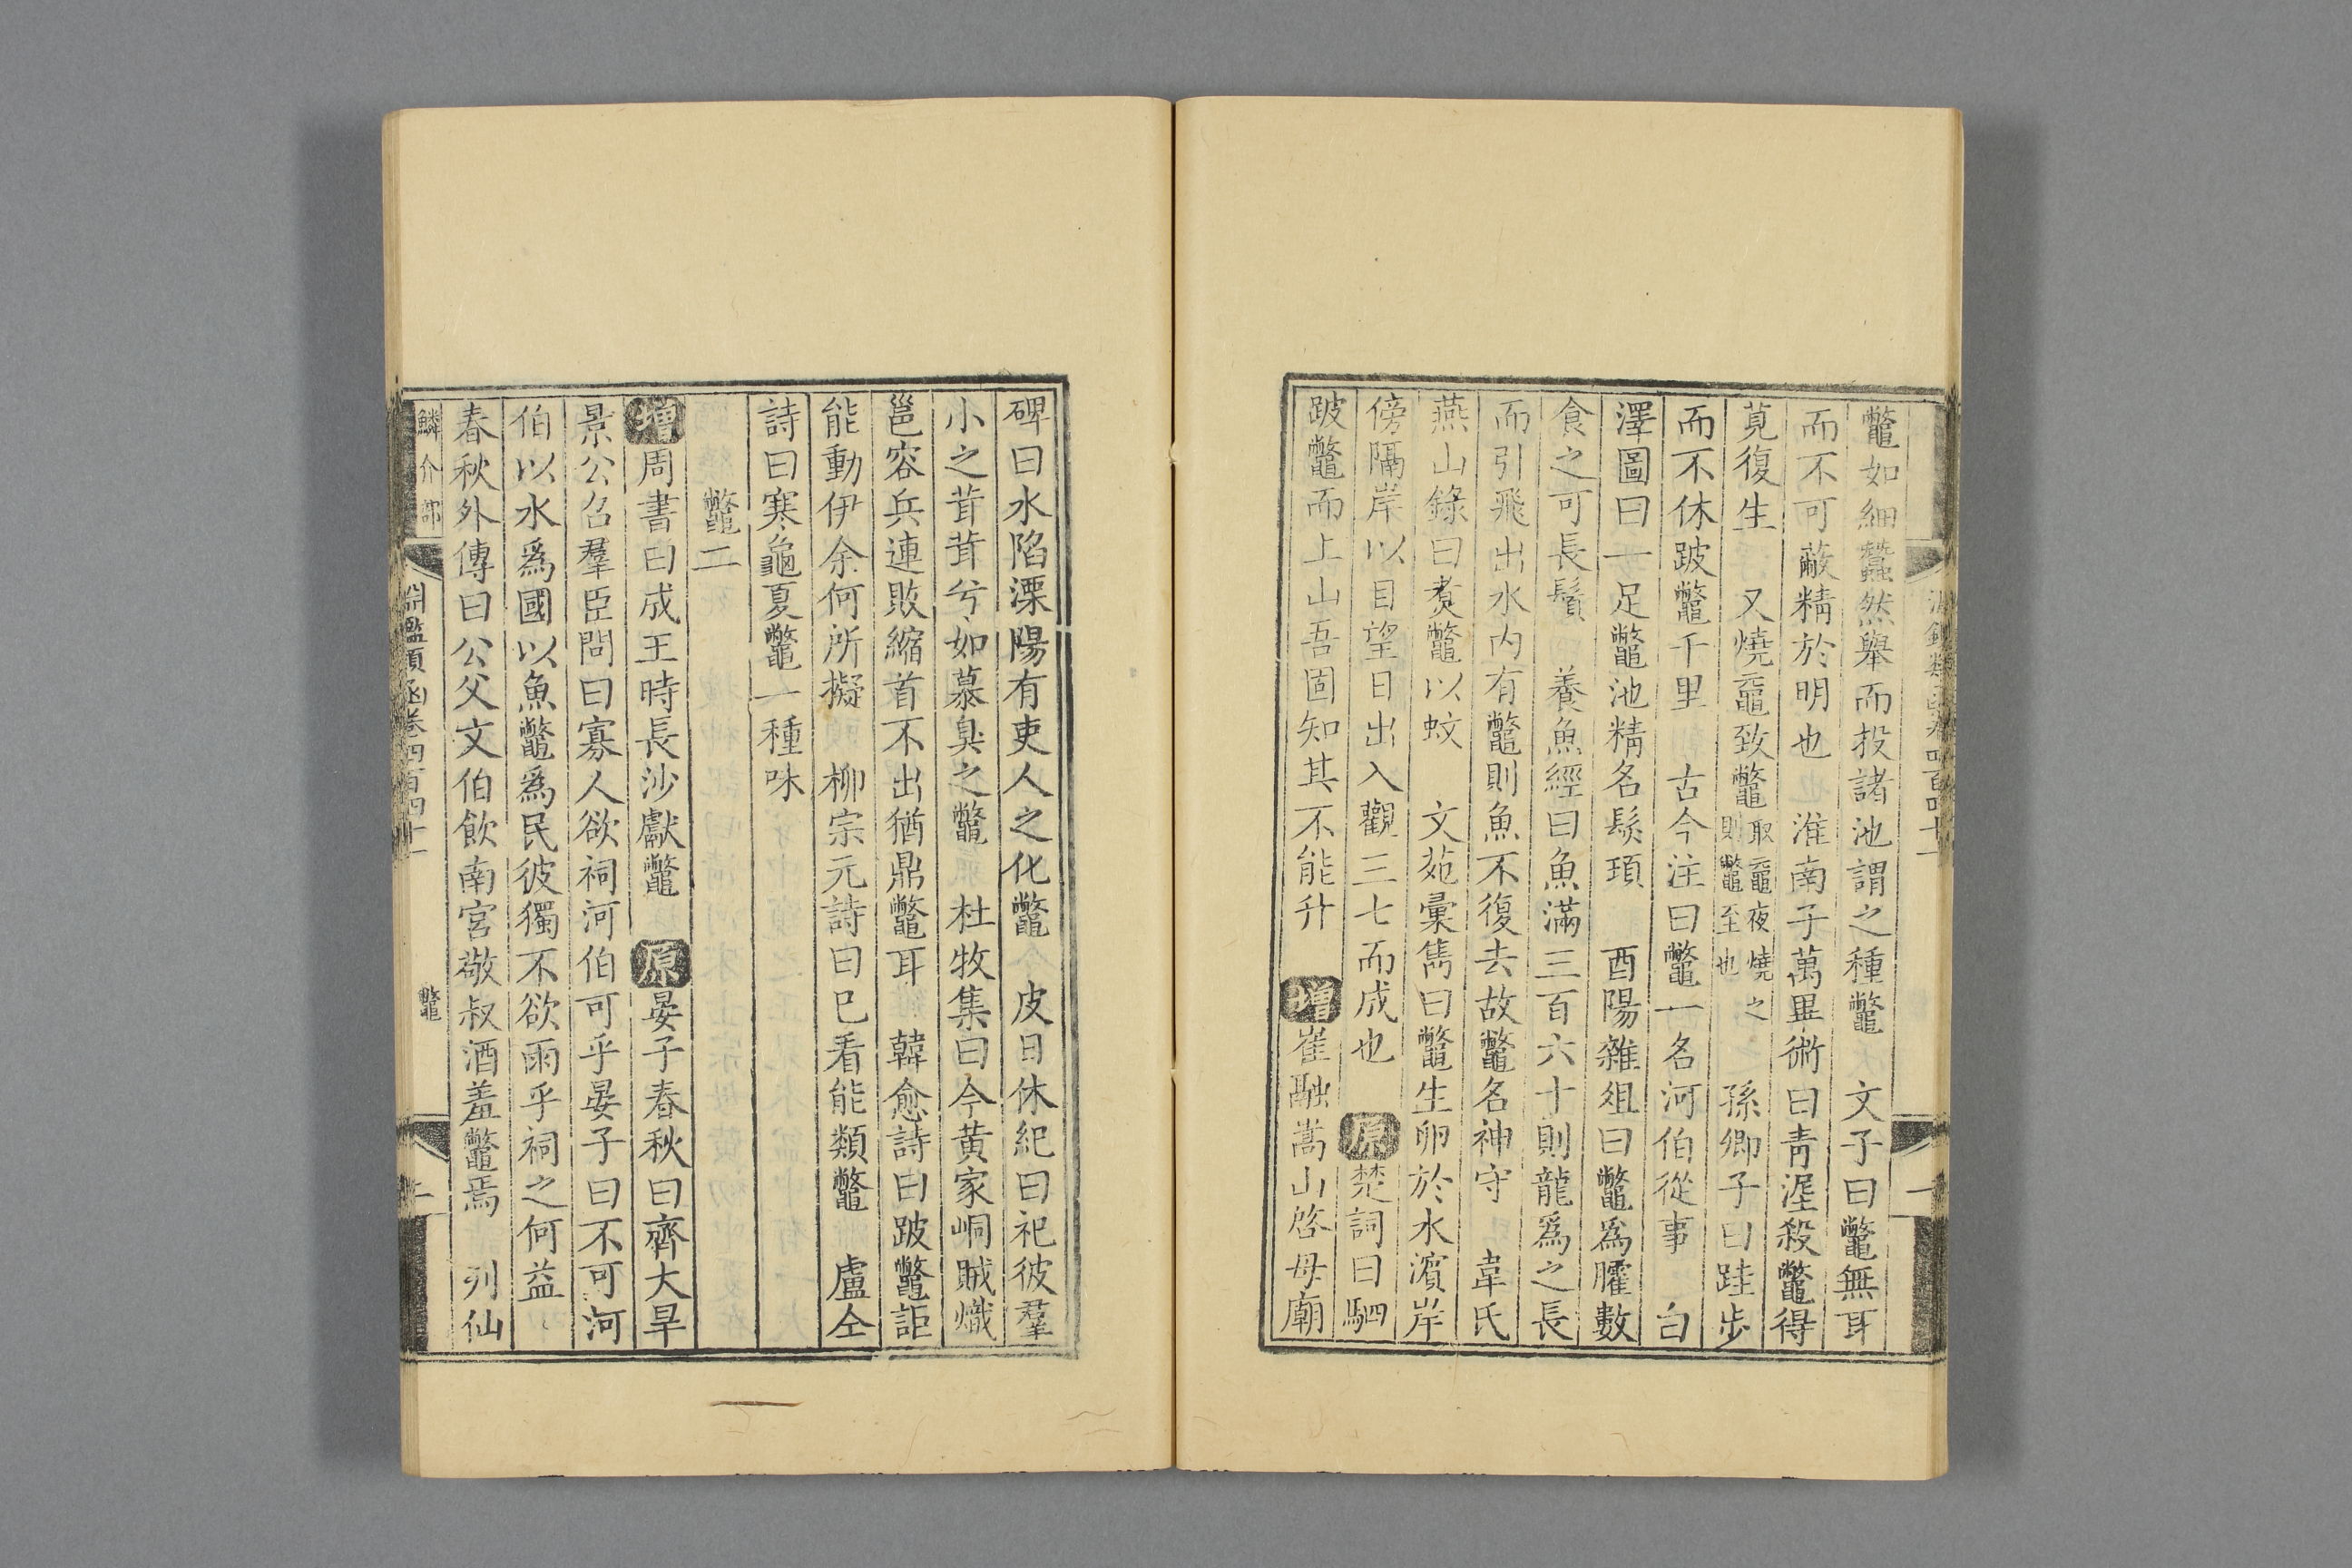 鼈如細蠶然舉而投諸池謂之種鼈　文子曰鼈無耳
而不可蔽精於明也　淮南子萬畢術曰青涇殺鼈得
莧復生　又燒黿致鼈取黿夜燒之則鼈至也　孫卿子曰跬步
而不休跛鼈千里　古今注曰鼈一名河伯從事　白
澤圖曰一足鼈池精名髮頊　酉陽雜俎曰鼈爲臛數
食之可長鬚　養魚經曰魚滿三百六十則龍爲之長
而引飛出水内有鼈則魚不復去故鼈名神守　韋氏
燕山錄曰煑鼈以蚊　文苑彙雋曰鼈生卵於水濱岸
傍隔岸以目望日出入觀三七而成也　原楚詞曰駟
跛鼈而上山吾固知其不能升　增崔融嵩山啓母廟
碑曰水陷溧陽有吏人之化鼈　皮日休紀曰祀彼羣
小之茸茸兮如慕臭之鼈　杜牧集曰今黄家峒賊熾
邕容兵連敗縮首不出猶鼎鼈耳　韓愈詩曰跛鼈詎
能動伊余何所擬　柳宗元詩曰巳看能類鼈　盧仝
詩曰寒龜夏鼈一種味
鼈二
增周書曰成王時長沙獻鼈　原晏子春秋曰齊大旱
景公召羣臣問曰寡人欲祠河伯可乎晏子曰不可河
伯以水爲國以魚鼈爲民彼獨不欲雨乎祠之何益
春秋外傳曰公父文伯飲南宮敬叔酒羞鼈焉　列仙
鱗介部　淵鑑類函卷四百四十一　鼈　二